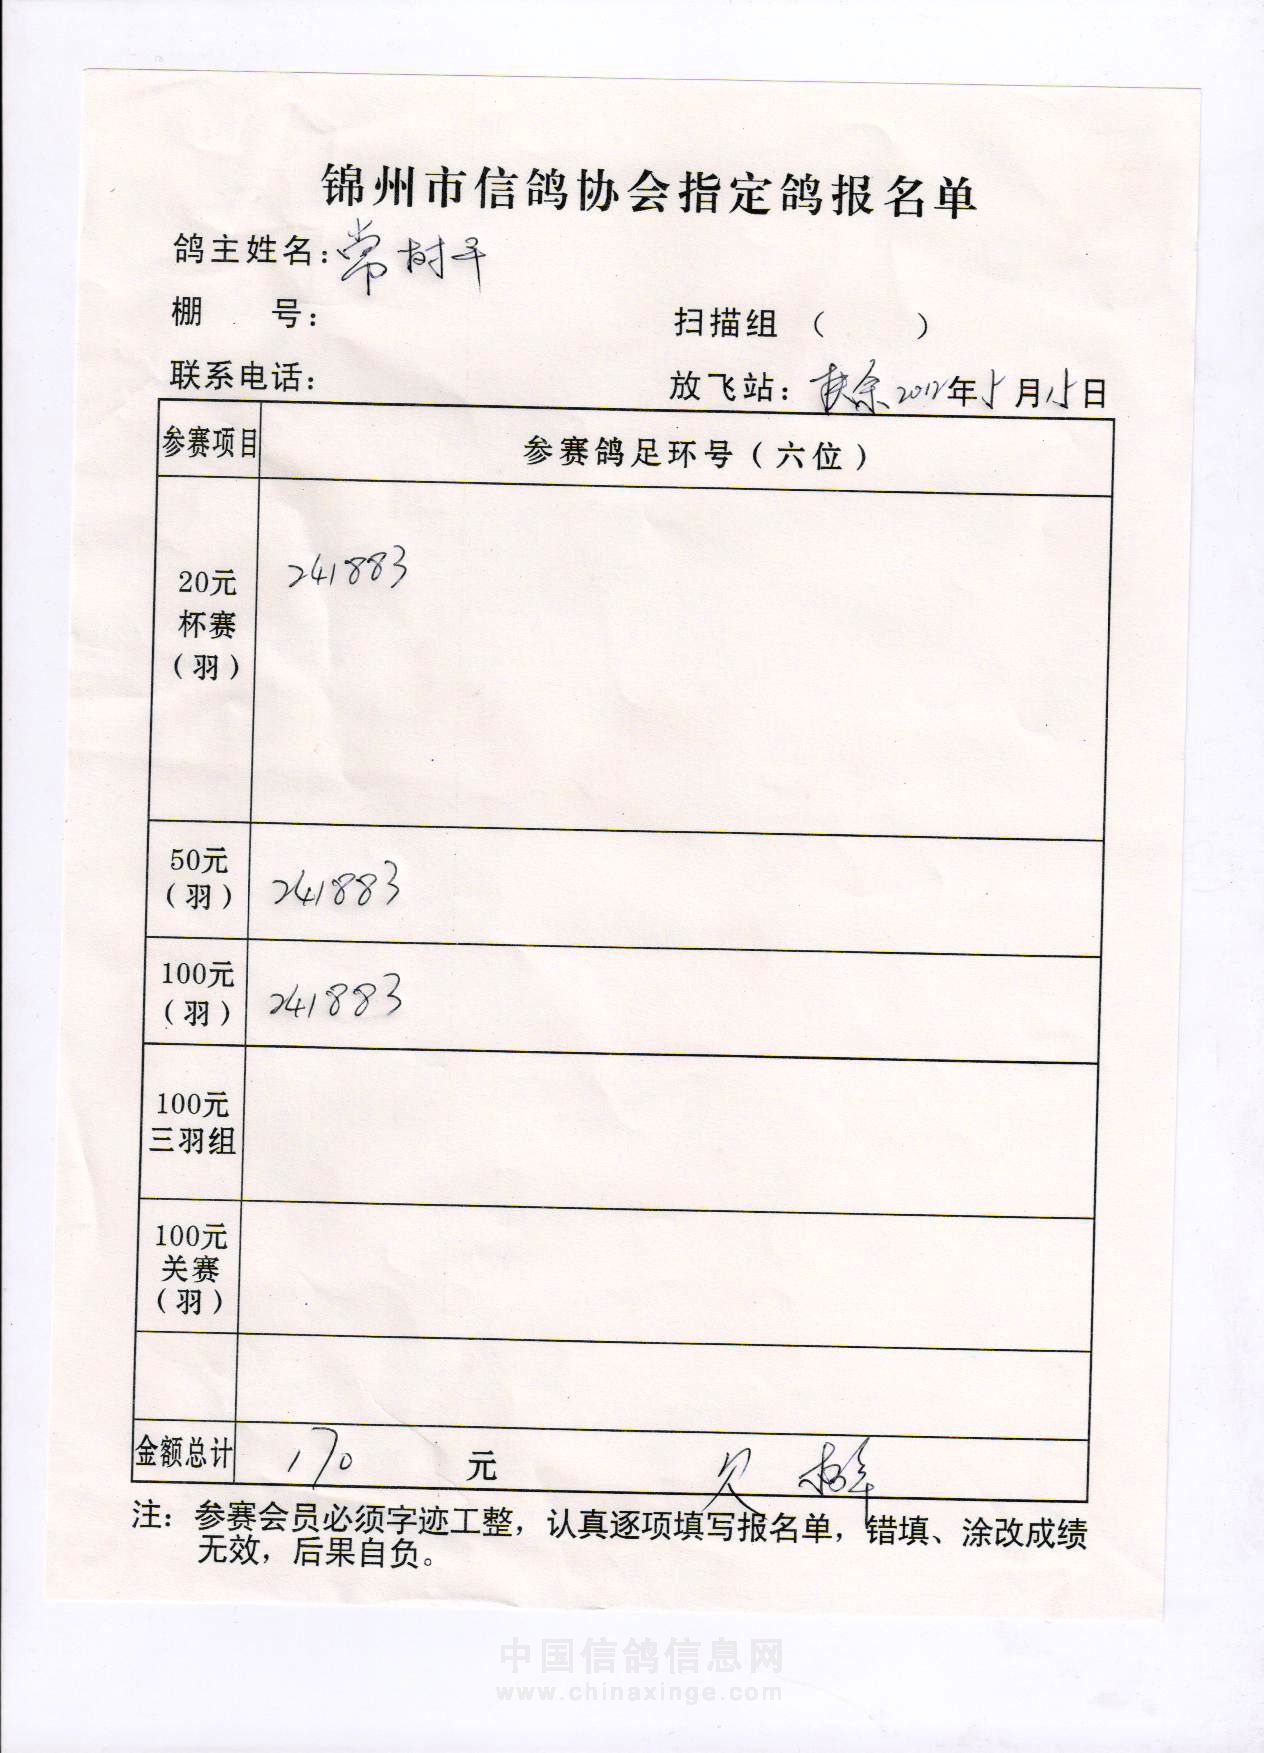 锦州市信鸽协会指定鸽报名单
鸽主姓名：常树平
棚 号：
扫描组 （ ）
联系电话：
放飞站：扶余2012年5月15日
参赛项目 参赛鸽足环号（六位）
20元
杯赛
（羽）
241883
50元
（羽）
241883
100元
（羽）
241883
100元
三羽组
100元
关赛
（羽）
金额总计 170 元 欠
注：参赛会员必须字迹工整，认真逐项填写报名单，错填、涂改成绩
无效，后果自负。
中国信鸽信息网
www.chinaxinge.com